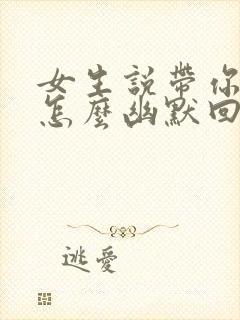 女生說帶你
怎麼幽默回
逃愛